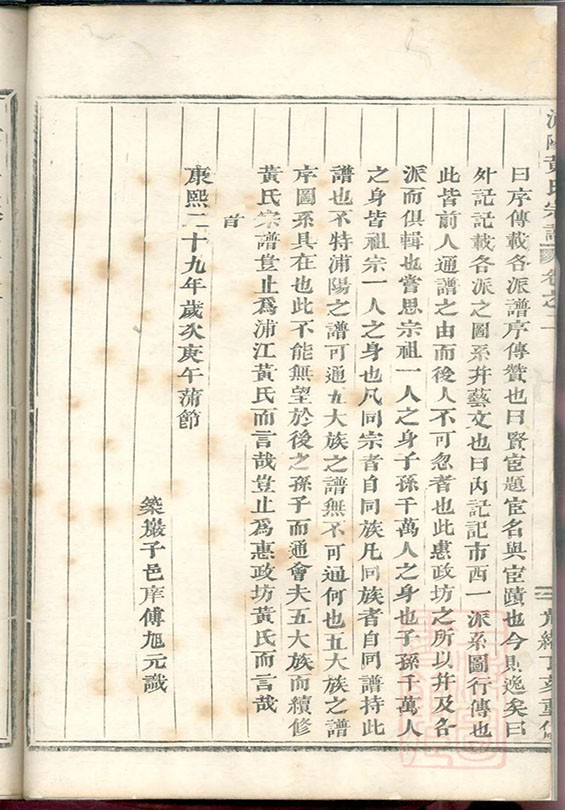 浦陽黃氏宗譜 卷之一
三 光緒丁亥重修
曰序傳載各派譜序傳贊也曰賢宦題宦名與宦蹟也今則逸矣曰
外記記載各派之圖系并藝文也曰內記記市西一派系圖行傳也
此皆前人通譜之由而後人不可忽者也此惠政坊之所以并及各
派而俱輯也嘗思宗祖一人之身子孫千萬人之身也子孫千萬人
之身皆祖宗一人之身也凡同宗者自同族凡同族者自同譜持此
譜也不特浦陽之譜可通五大族之譜無不可通何也五大族之譜
序圖系具在也此不能無望於後之孫子而通會夫五大族而續修
黃氏宗譜豈止為浦江黃氏而言哉豈止為惠政坊黃氏而言哉
首
康熙二十九年歲次庚午蒲節
築巖子邑庠傅旭元識